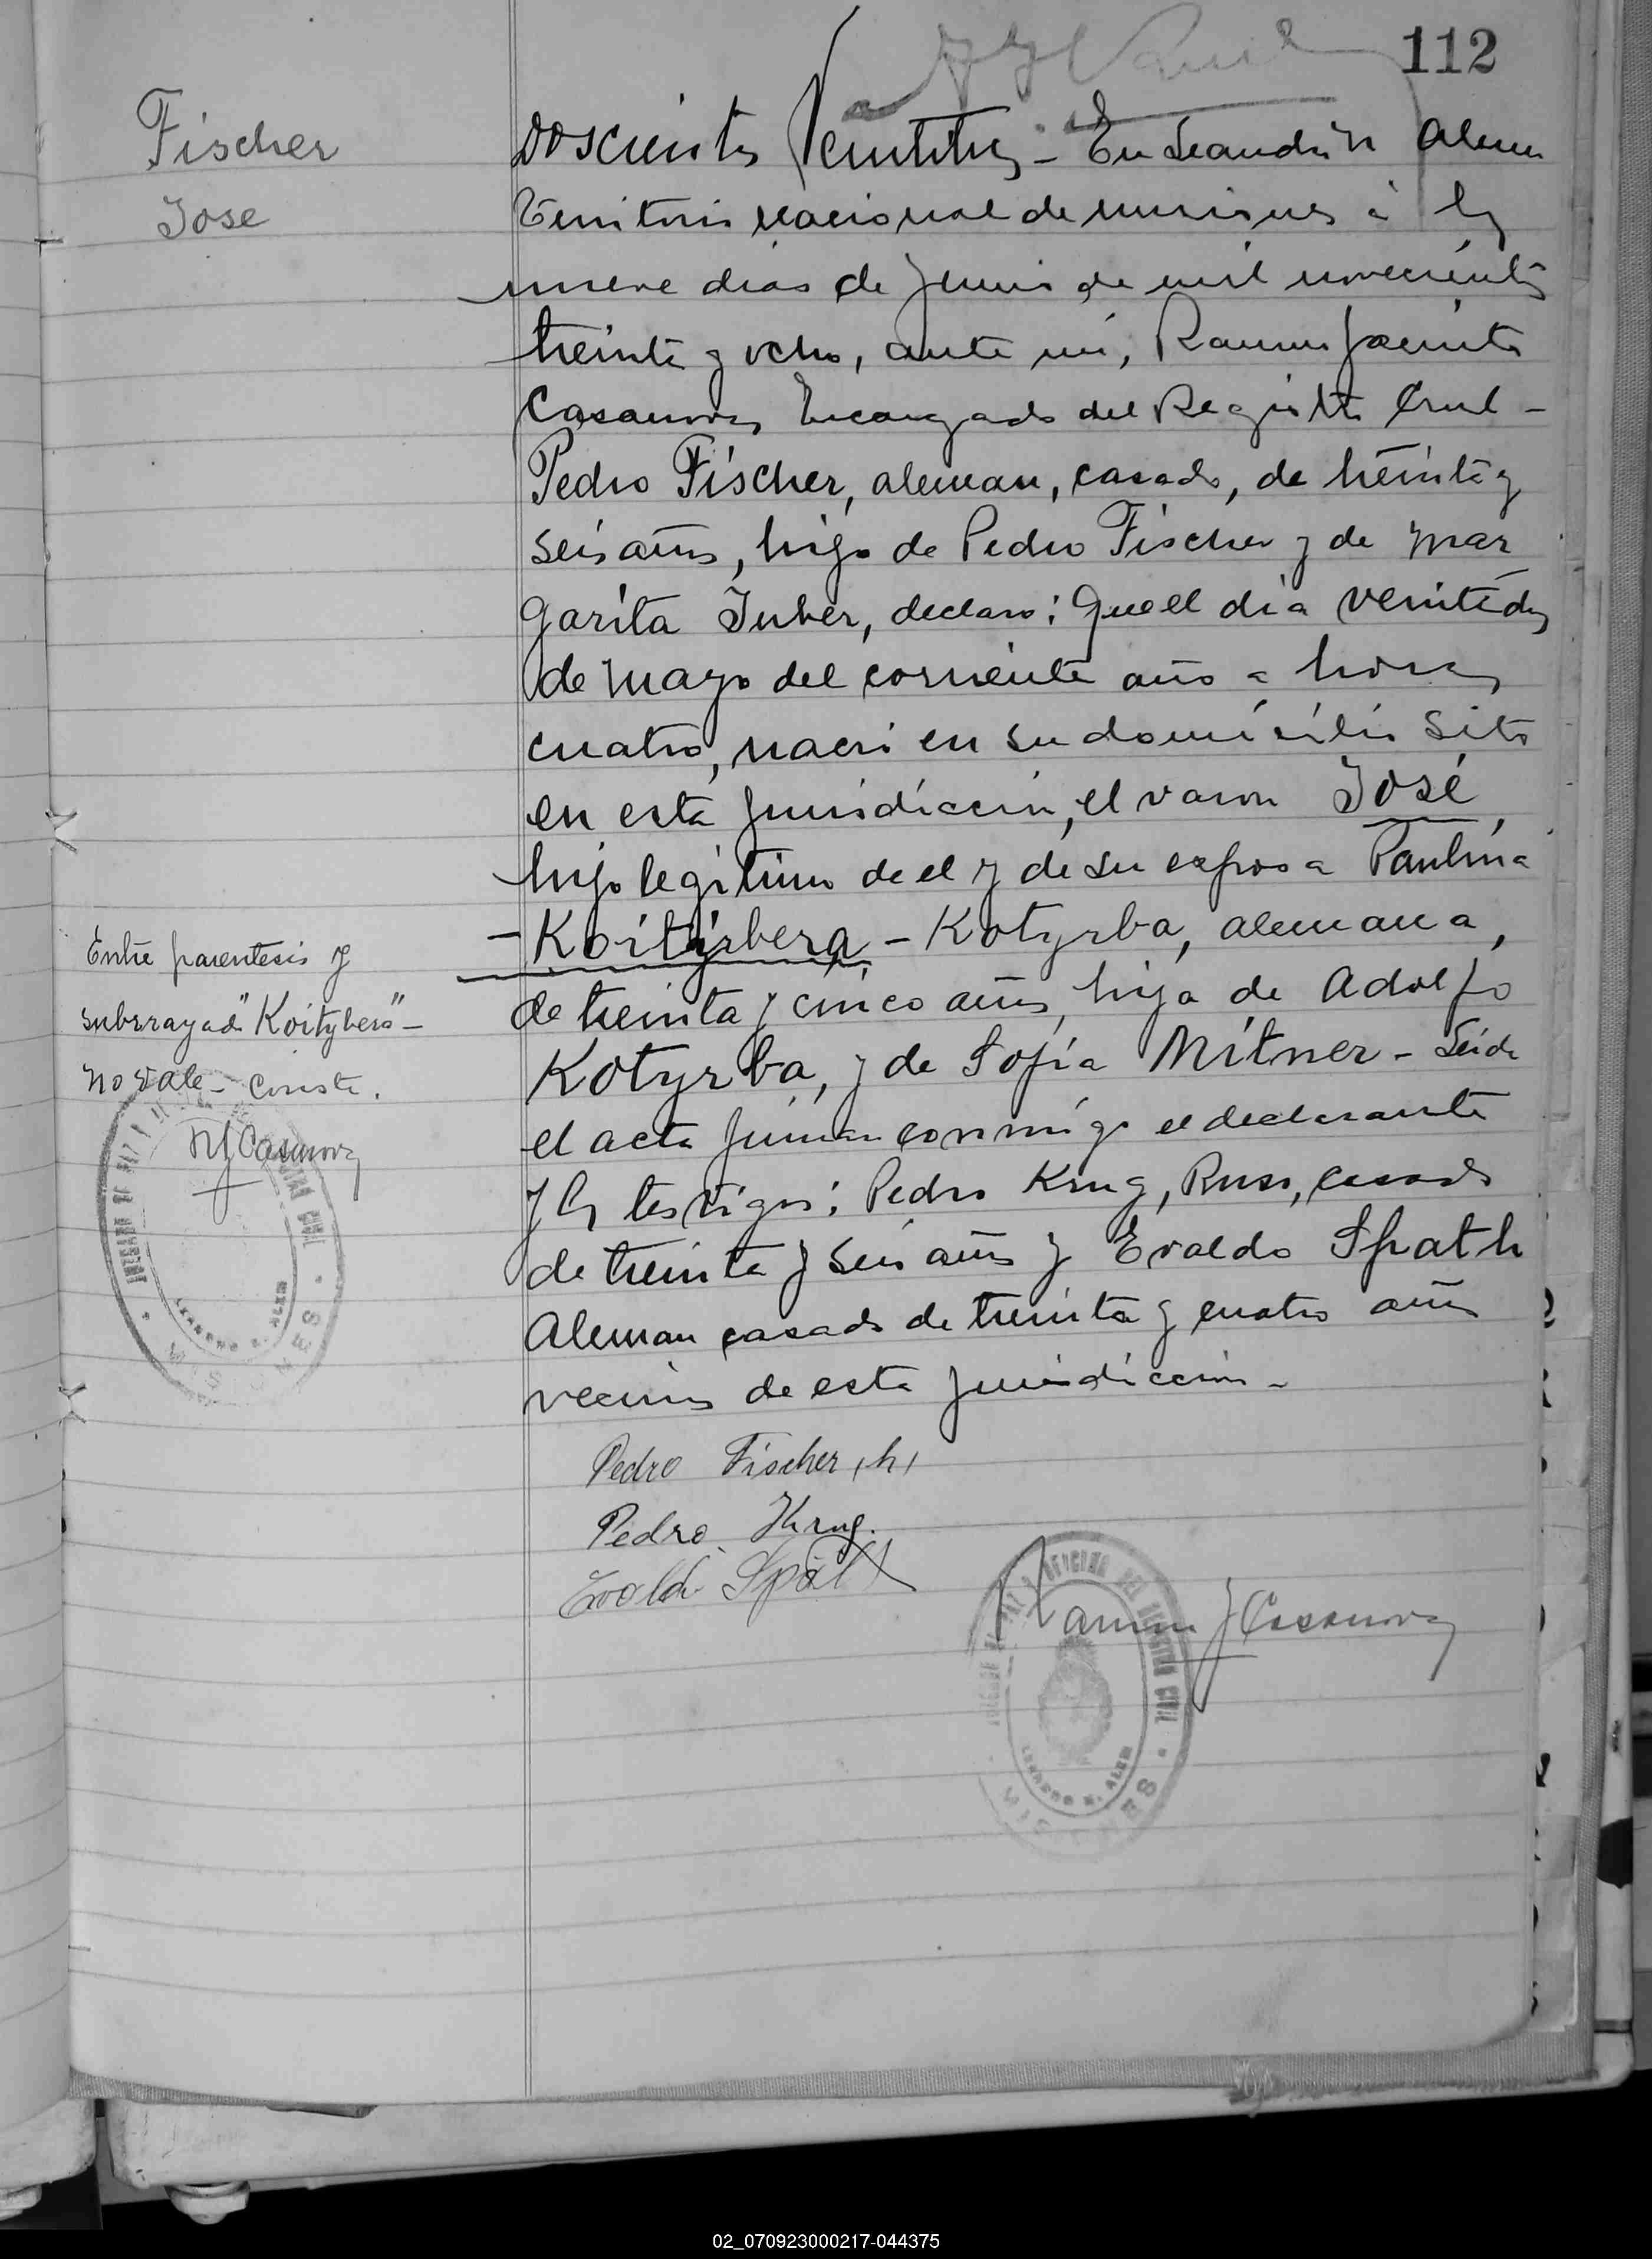 112
Fischer
Jose
Doscientos Veintitres - En Leandro N Alem
Territorio nacional de misiones à los
nueve dias de Junio de mil novecientos
treinta y ocho, ante mi, Ramon Jacinto
Casanova, Encargado del Registro Civil -
Pedro Fischer, aleman, casado, de treinta y
seis años, hijo de Pedro Fischer y de Mar
garita Juber, declaro: Que el dia veintidos
de mayo del corriente año a horas
cuatro, nació en su domicilio sito
en esta jurisdiccion, el varon José,
hijo legitimo de el y de su esposa Paulina
- Koitÿrbera - Kotyrba, alemana,
de treinta y cinco años, hija de Adolfo
Kotyrba, y de Sofia Mitner - Leida
el acta firman conmigo el declarante
y los testigos: Pedro Krug, Ruso, casado
de treinta y seis años y Evaldo Spath
Aleman casado de treinta y cuatro años
vecinos de esta jurisdiccion -
Entre parentesis y
subrrayado "Koitybera" -
no vale - conste.
RJ Casanova
Pedro Fischer (h)
Pedro Krug.
Evaldo Spät
Ramon J Casanova
JUZGADO DE PAZ Y OFICINA DEL REGISTRO CIVIL
LEANDRO N. ALEM
MISIONES
02_070923000217-044375